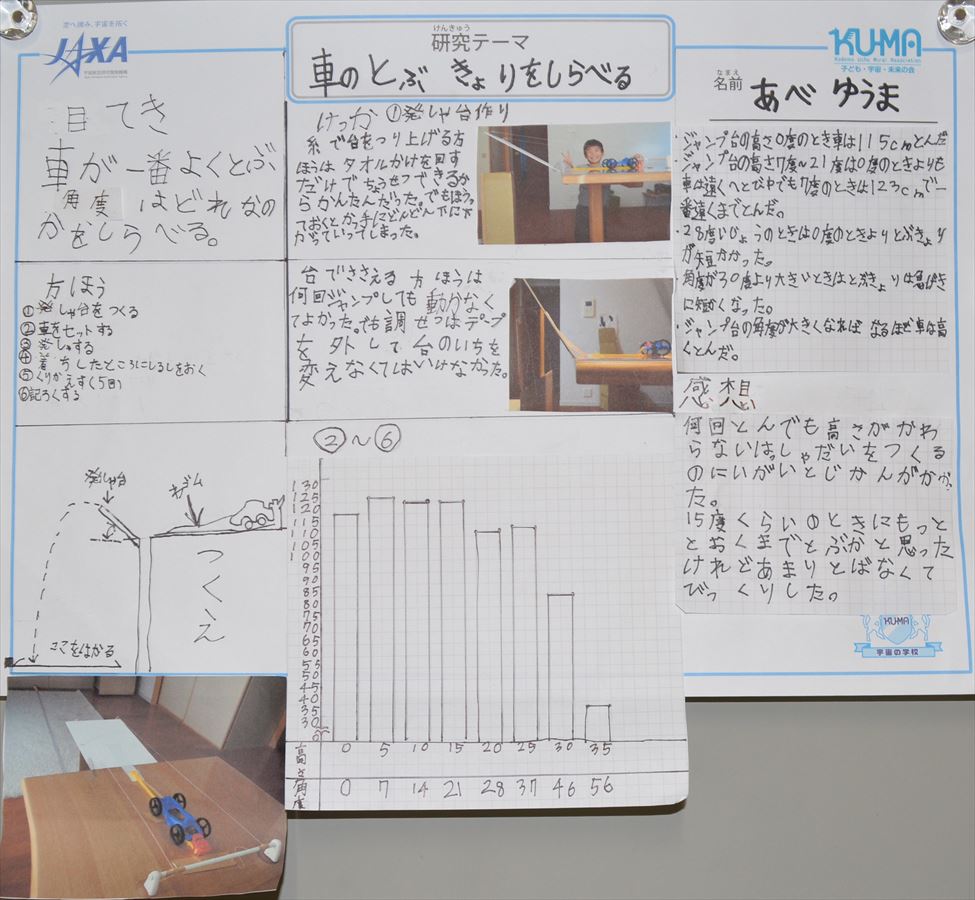 空へ挑み、宇宙を拓く
JAXA
宇宙航空研究開発機構
けんきゅう
研究テーマ
車のとぶ きょりをしらべる
KU-MA
子ども・宇宙・未来の会
なまえ
名前
あべ ゆうま
目 てき
車が一番よくとぶ
角度 はどれなの
かをしらべる。
方ほう
①発しゃ台をつくる
②車をセットする
③発しゃする
④着ちしたところにしるしをおく
⑤くりかえす(5回)
⑥記ろくする
発しゃ台
ゴム
つくえ
ここをはかる
けっか ①発しゃ台作り
糸で台をつり上げる方
ほうは タオルかけを回す
だけでちょうせつできるか
らかんたんだった。でもほうっ
ておくとかっ手にどんどん下に下
がっていってしまった。
台でささえる 方ほうは
何回ジャンプしても 動かなく
てよかった。でも調せつはテープ
を 外して台のいちを
変えなくてはいけなかった。
②～⑥
130
125
120
115
110
105
100
95
90
85
80
75
70
65
60
55
50
45
40
35
30
0
高さ 0 5 10 15 20 25 30 35
角度 0 7 14 21 28 37 46 56
・ジャンプ台の高さ0度のとき車は115cmとんだ
・ジャンプ台の高さ7度～21度は0度のときよりも
車は遠くへとび中でも7度のときは123cmで一
番遠くまでとんだ。
・28度いじょうのときは0度のときよりとぶきょり
が短かかった。
角度が30度より大きいときはとぶきょりは急げき
に短かくなった。
・ジャンプ台の角度が大きくなれば なるほど車は高
くとんだ。
感想
何回とんでも高さがかわ
らないはっしゃだいをつくる
のにいがいとじかんがかかっ
た。
15度くらいのときにもっと
とおくまでとぶかと思った
けれどあまりとばなくて
びっくりした。
KU-MA
宇宙の学校